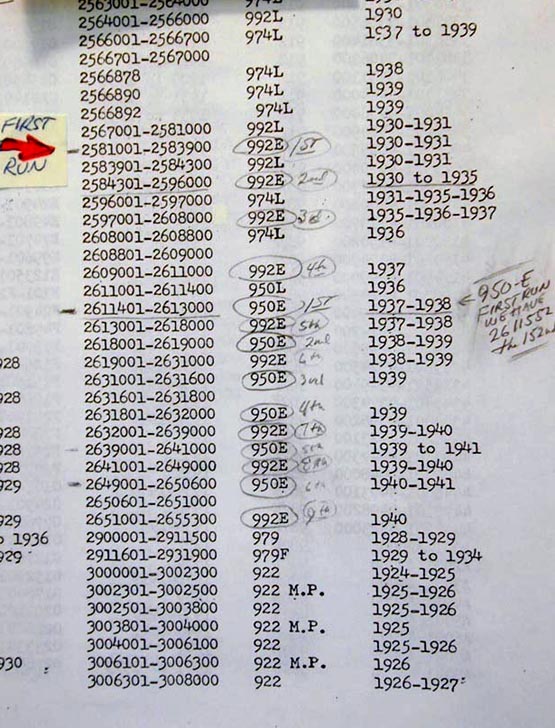 2563001-2564000 974L
2564001-2566000 992L 1930
2566001-2566700 974L 1937 to 1939
2566701-2567000
2566878 974L 1938
2566890 974L 1939
2566892 974L 1939
FIRST RUN
2567001-2581000 992L 1930-1931
2581001-2583900 992E 1ST 1930-1931
2583901-2584300 992L 1930-1931
2584301-2596000 992E 2nd 1930 to 1935
2596001-2597000 974L 1931-1935-1936
2597001-2608000 992E 3d. 1935-1936-1937
2608001-2608800 974L 1936
2608801-2609000
2609001-2611000 992E 4th 1937
2611001-2611400 950L 1936
2611401-2613000 950E 1ST 1937-1938
950-E
FIRST RUN
WE HAVE
2611552
th 152nd
2613001-2618000 992E 5th 1937-1938
2618001-2619000 950E 2nd 1938-1939
928 2619001-2631000 992E 6th 1938-1939
2631001-2631600 950E 3rd 1939
928 2631601-2631800
2631801-2632000 950E 4th 1939
928 2632001-2639000 992E 7th 1939-1940
928 2639001-2641000 950E 5th 1939 to 1941
928 2641001-2649000 992E 8th 1939-1940
929 2649001-2650600 950E 6th 1940-1941
2650601-2651000
929 2651001-2655300 992E 9th 1940
o 1936 2900001-2911500 979 1928-1929
929 2911601-2931900 979F 1929 to 1934
3000001-3002300 922 1924-1925
3002301-3002500 922 M.P. 1925-1926
3002501-3003800 922 1925-1926
3003801-3004000 922 M.P. 1925
3004001-3006100 922 1925-1926
930 3006101-3006300 922 M.P. 1926
3006301-3008000 922 1926-1927